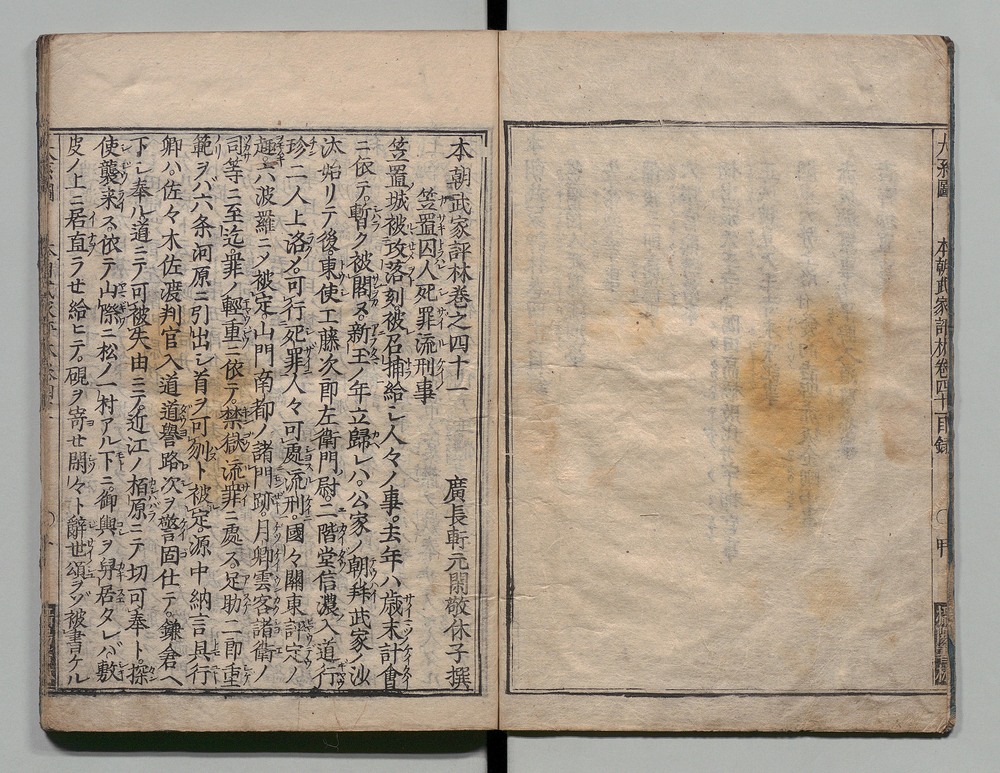 大系圖 本朝武家評林卷四十一目錄
本朝武家評林巻之四十一 廣長軒元閑敬休子撰
笠置囚人死罪流刑事
笠置城被攻落刻被召捕給シ人々ノ事。去年ハ歳末計會
ニ依テ。暫ク被閣ヌ。新玉ノ年立歸レハ。公家ノ朝拜武家ノ沙
汰始リテ後。東使工藤次郎左衛門尉。二階堂信濃入道行
珍二人上洛メ。可行死罪人々可處流刑。國々關東評定ノ
趣。六波羅ニメ被定。山門南都ノ諸門跡。月卿雲客諸衛ノ
司等ニ至迄。罪ノ輕重ニ依テ。禁獄流罪ニ處ス。足助二郎重
範ヲハ六条河原ニ引出シ首ヲ可刎ト被定。源中納言具行
卿ハ。佐々木佐渡判官入道道譽路次ヲ警固仕テ。鎌倉ヘ
下シ奉ル。道ニテ可被失由ニテ。近江ノ栢原ニテ切可奉ト。探
使襲来ス。依テ山際ニ松ノ一村アル下ニ。御輿ヲ舁居タレバ。敷
皮ノ上ニ居直ラセ給ヒテ。硯ヲ寄セ閑々ト辭世頌ヲゾ被書ケル